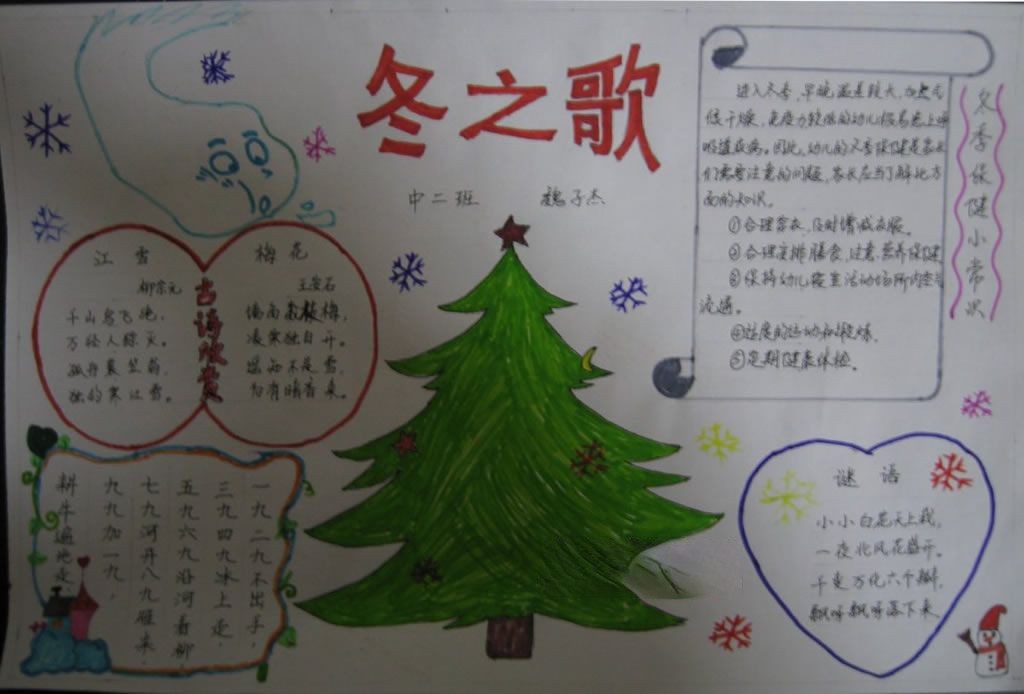 冬之歌
中二班 魏子杰
江雪
柳宗元
千山鸟飞绝，
万径人踪灭。
孤舟蓑笠翁，
独钓寒江雪。
古诗欣赏
梅花
王安石
墙角数枝梅，
凌寒独自开。
遥知不是雪，
为有暗香来。
冬季保健小常识
进入冬季，早晚温差较大，
候干燥，免疫力较低的幼儿极易患上呼
吸道疾病。因此，幼儿的冬季保健是家长
们需要注意的问题，家长应当了解此方
面的知识。
①合理穿衣，及时增减衣服。
②合理安排膳食，注意营养保健
③保持幼儿寝室活动场所内空气
流通。
④适度的运动和锻炼。
⑤定期健康体检。
一九二九不出手，
三九四九冰上走，
五九六九沿河看柳，
七九河开八九雁来，
九九加一九，
耕牛遍地走
谜语
小小白花天上栽，
一夜北风花盛开。
千变万化六个瓣，
飘呀飘呀落下来